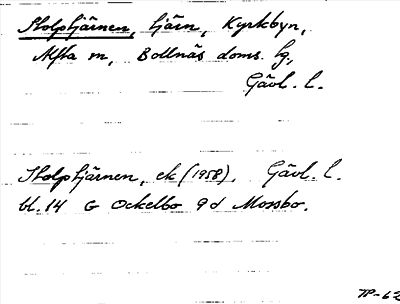 Stolptjärnen, tjärn, Kyrkbyn,
Alfta sn, Bollnäs doms. hg.,
Gävl. l.
Stolptjärnen, ek (1958). Gävl. l.
bl. 14 G Ockelbo 9d Mossbo.
TP-62